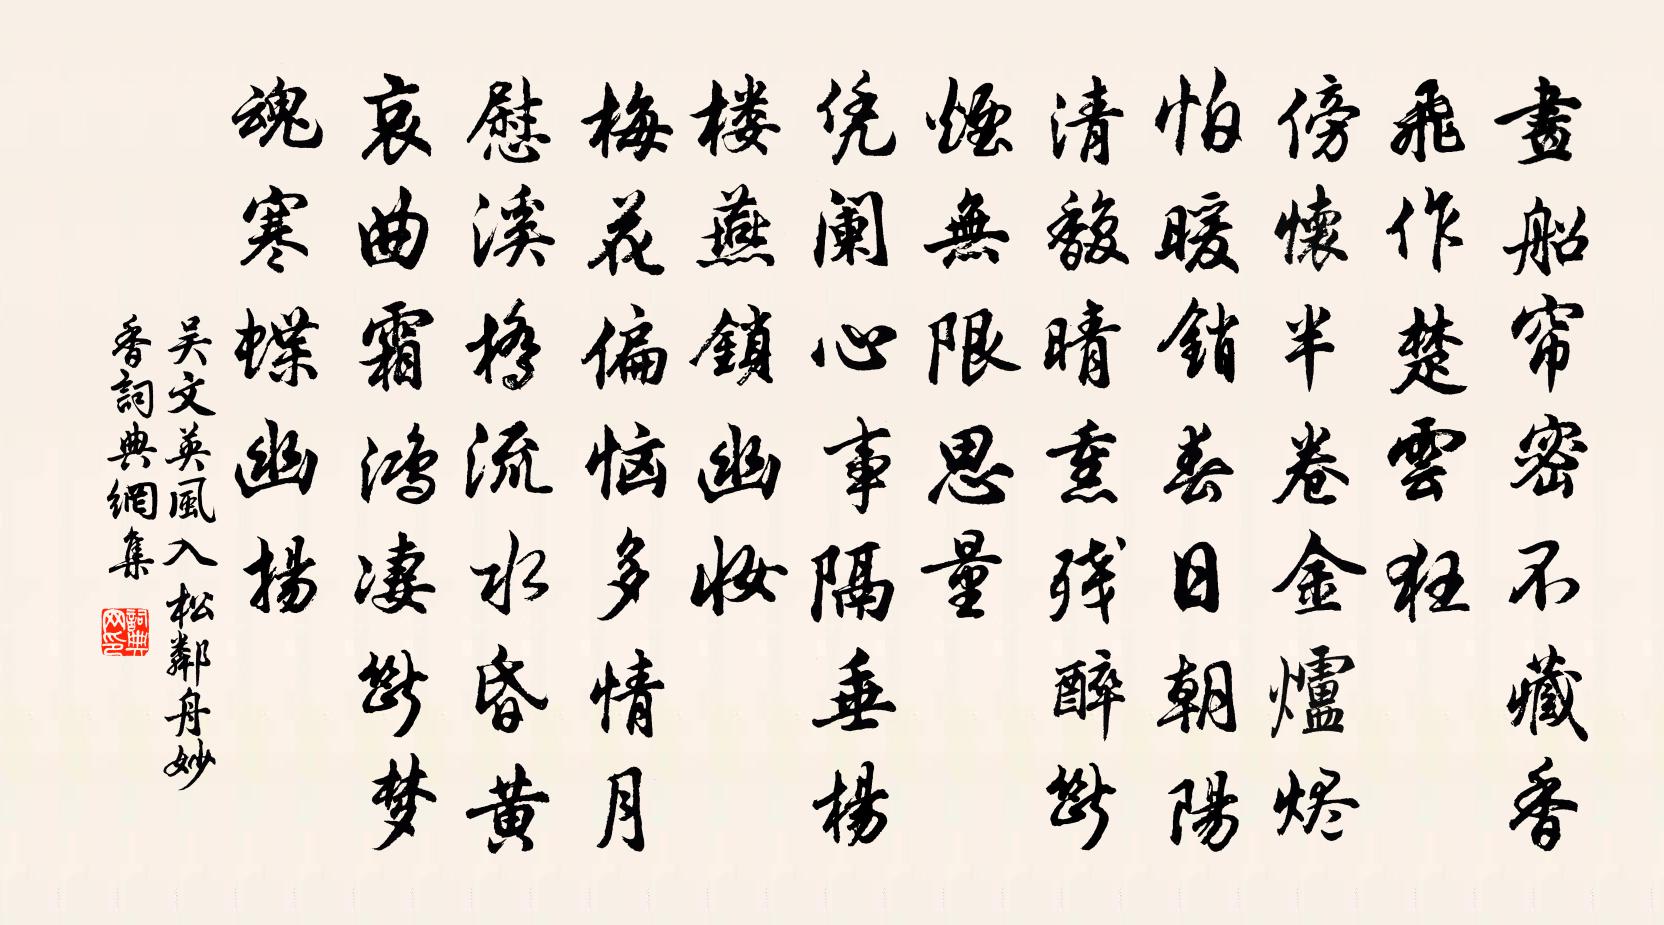 畫船帘密不藏香
飛作楚雲狂
傍懷半卷金爐烬
怕暖銷春日朝陽
清馥晴熏残醉
煙無限思量
凭阑心事隔垂楊
楼燕鎖幽妝
梅花偏恼多情月
慰溪橋流水昏黄
哀曲霜鴻凄斷梦
魂寒蝶幽揚
吴文英風入松鄰舟妙
香詞典網集
詞典
网